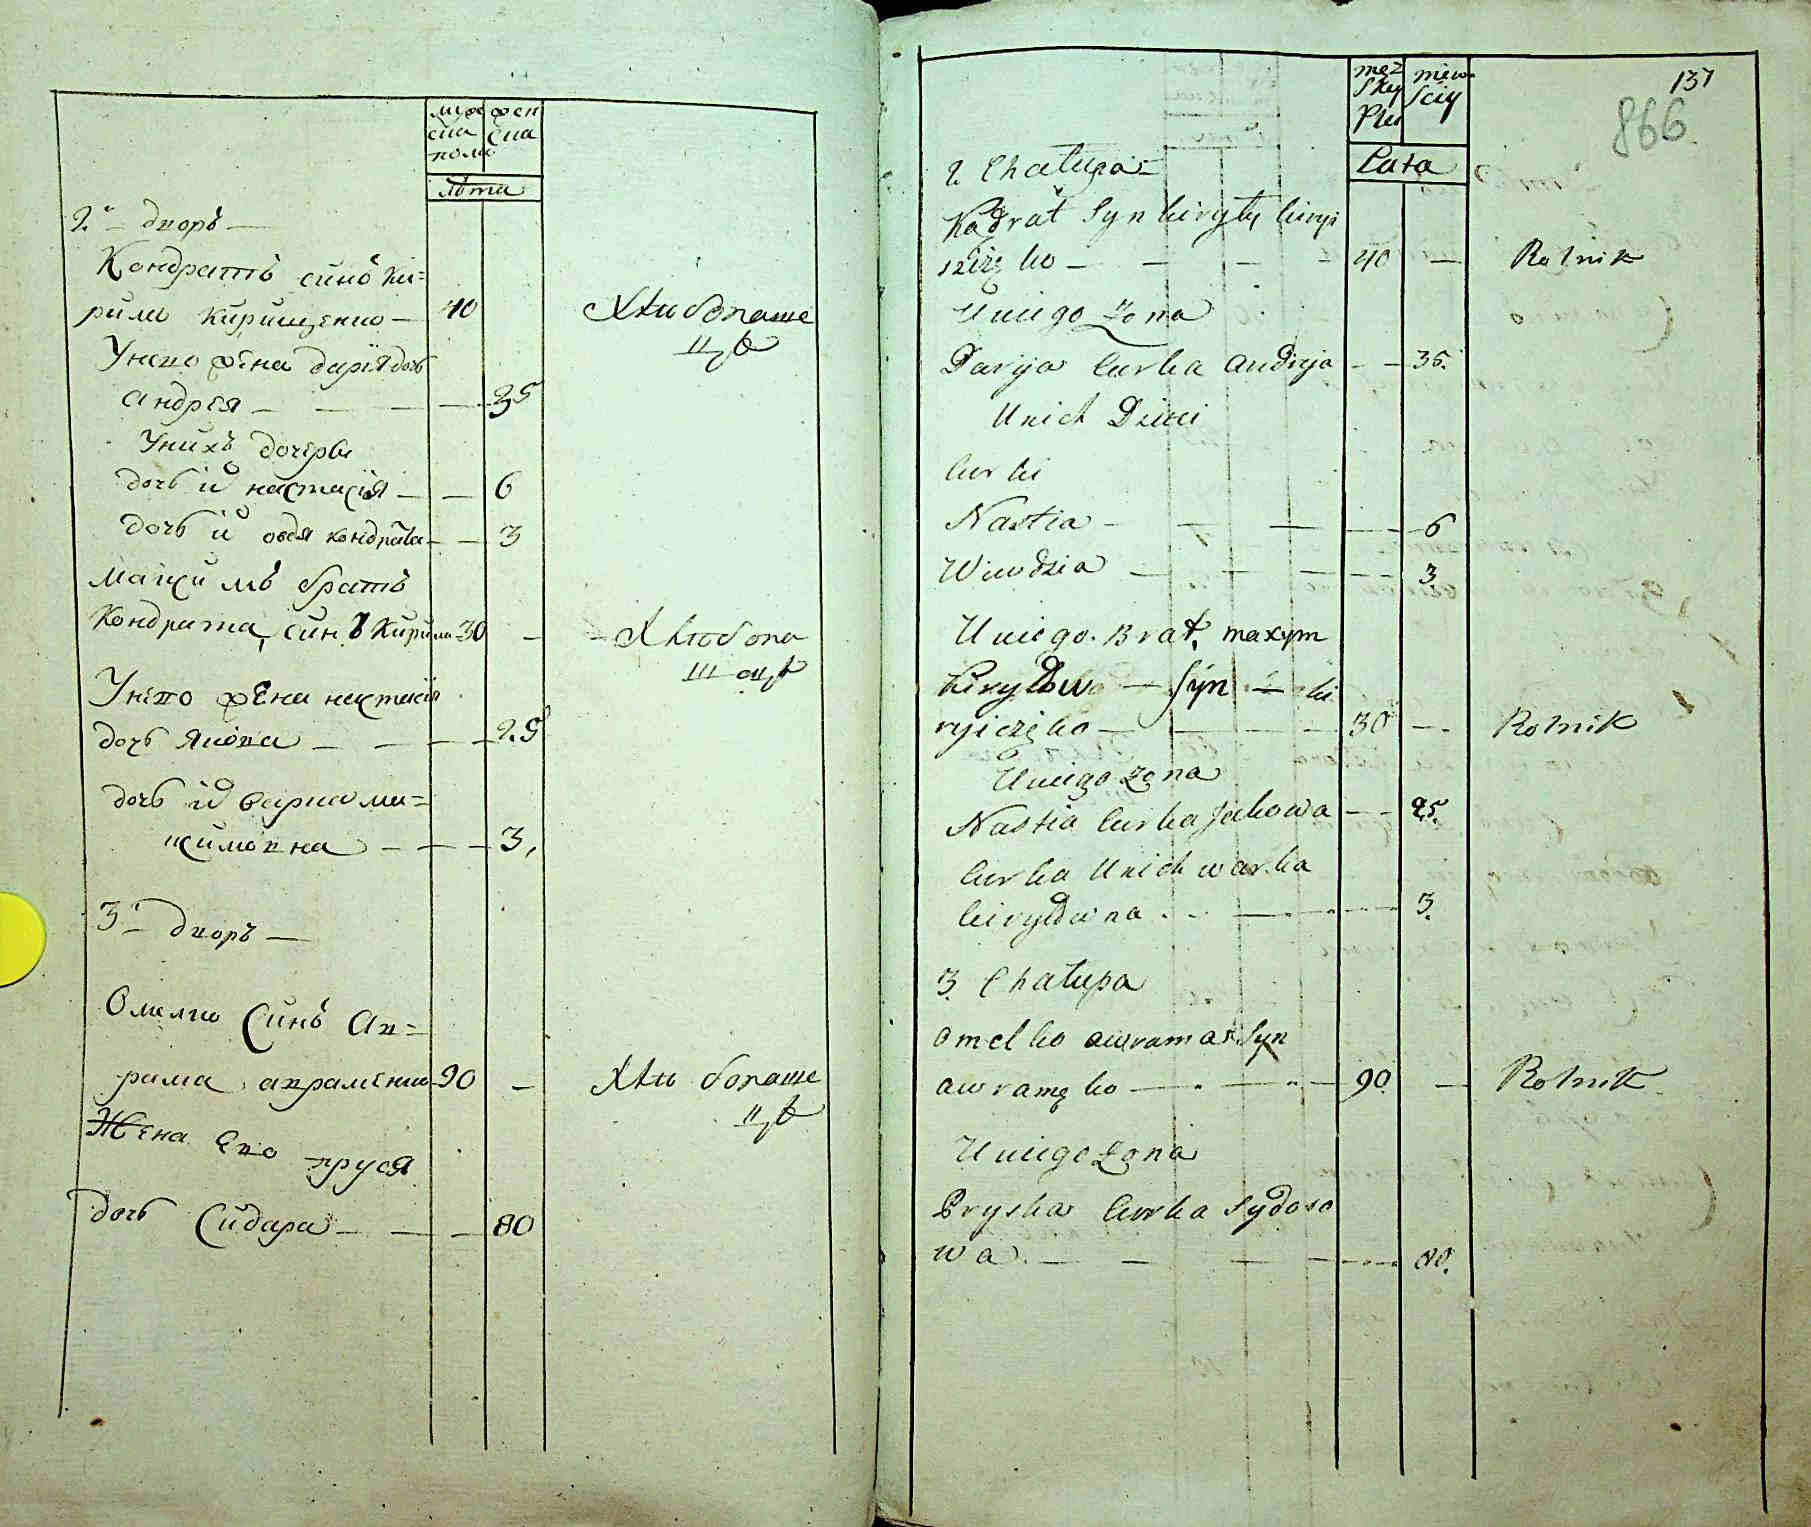 муж жен
ска ска
пола
лѣта
2.й дворъ —
Кондратъ синъ Ки=
рила Кирищенко — 40 Хлибопаше
цъ
Унего жена дария дочь
андрея — — — — 35
Унихъ дочеры
дочь й настасїя — — 6
дочь й овдя кондрата — — 3
Мацимъ братъ
Кондрата, синъ Кирила 30 — — Хлибопа
шецъ
Унего жена настасїя
дочь Якова — — — — 25
дочь й варка ма=
цимовна — — — 3,
3й дворъ —
Омелко Синъ Ав=
рама авраменко 90 — Хлибопаше
цъ
Жена Его пруся
дочь Сидара — — — 80
137
866
męz niew
skey sciy
Plei
Lata
2 Chałupa
Kądrat Syn kiryły kiryi
szczęko — — — — 40 — Rolnik
Uniego Zona
Darija Curka Andrija — — 35.
Unich Dzieci
Curki
Nastia — — — — 6
Wiwdzia — — — — 3.
Uniego. Brat, maxym
kiryłow — Syn — ki
ryiczęko — — — 30 — Rolnik
Uniego zona
Nastia Curka Jakowa — — 25.
Curka Unich warka
kiryłowna . . — — — 3.
3. Chałupa
omelko awrama Syn
awramęko — — — 90. — Rolnik
Uniego Zona
Pryska Curka Sydoro
wa. — — — — 80.